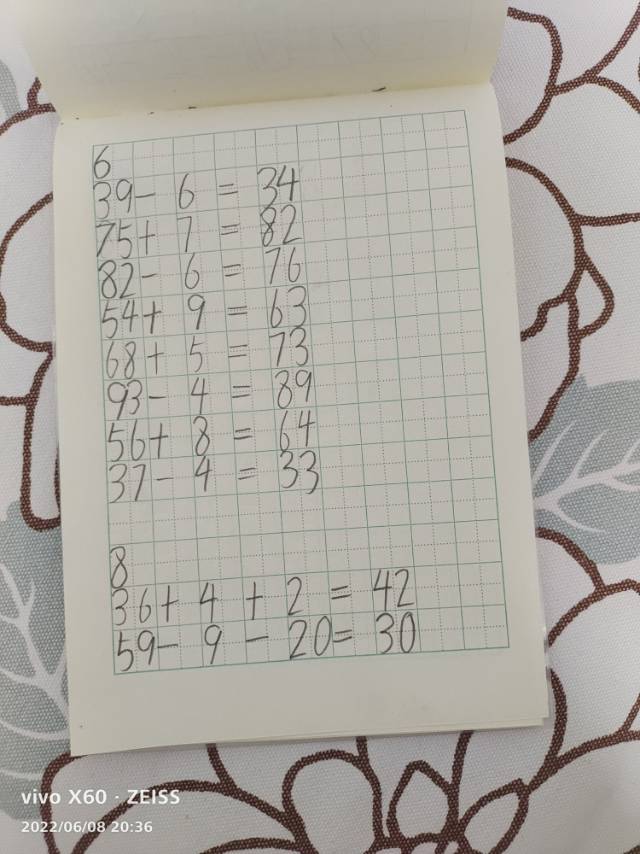 6
39- 6 = 34
75+ 7 = 82
82- 6 = 76
54+ 9 = 63
68+ 5 = 73
93- 4 = 89
56+ 8 = 64
37- 4 = 33
8
36+ 4 + 2 = 42
59- 9 - 20= 30
vivo X60 · ZEISS
2022/06/08 20:36